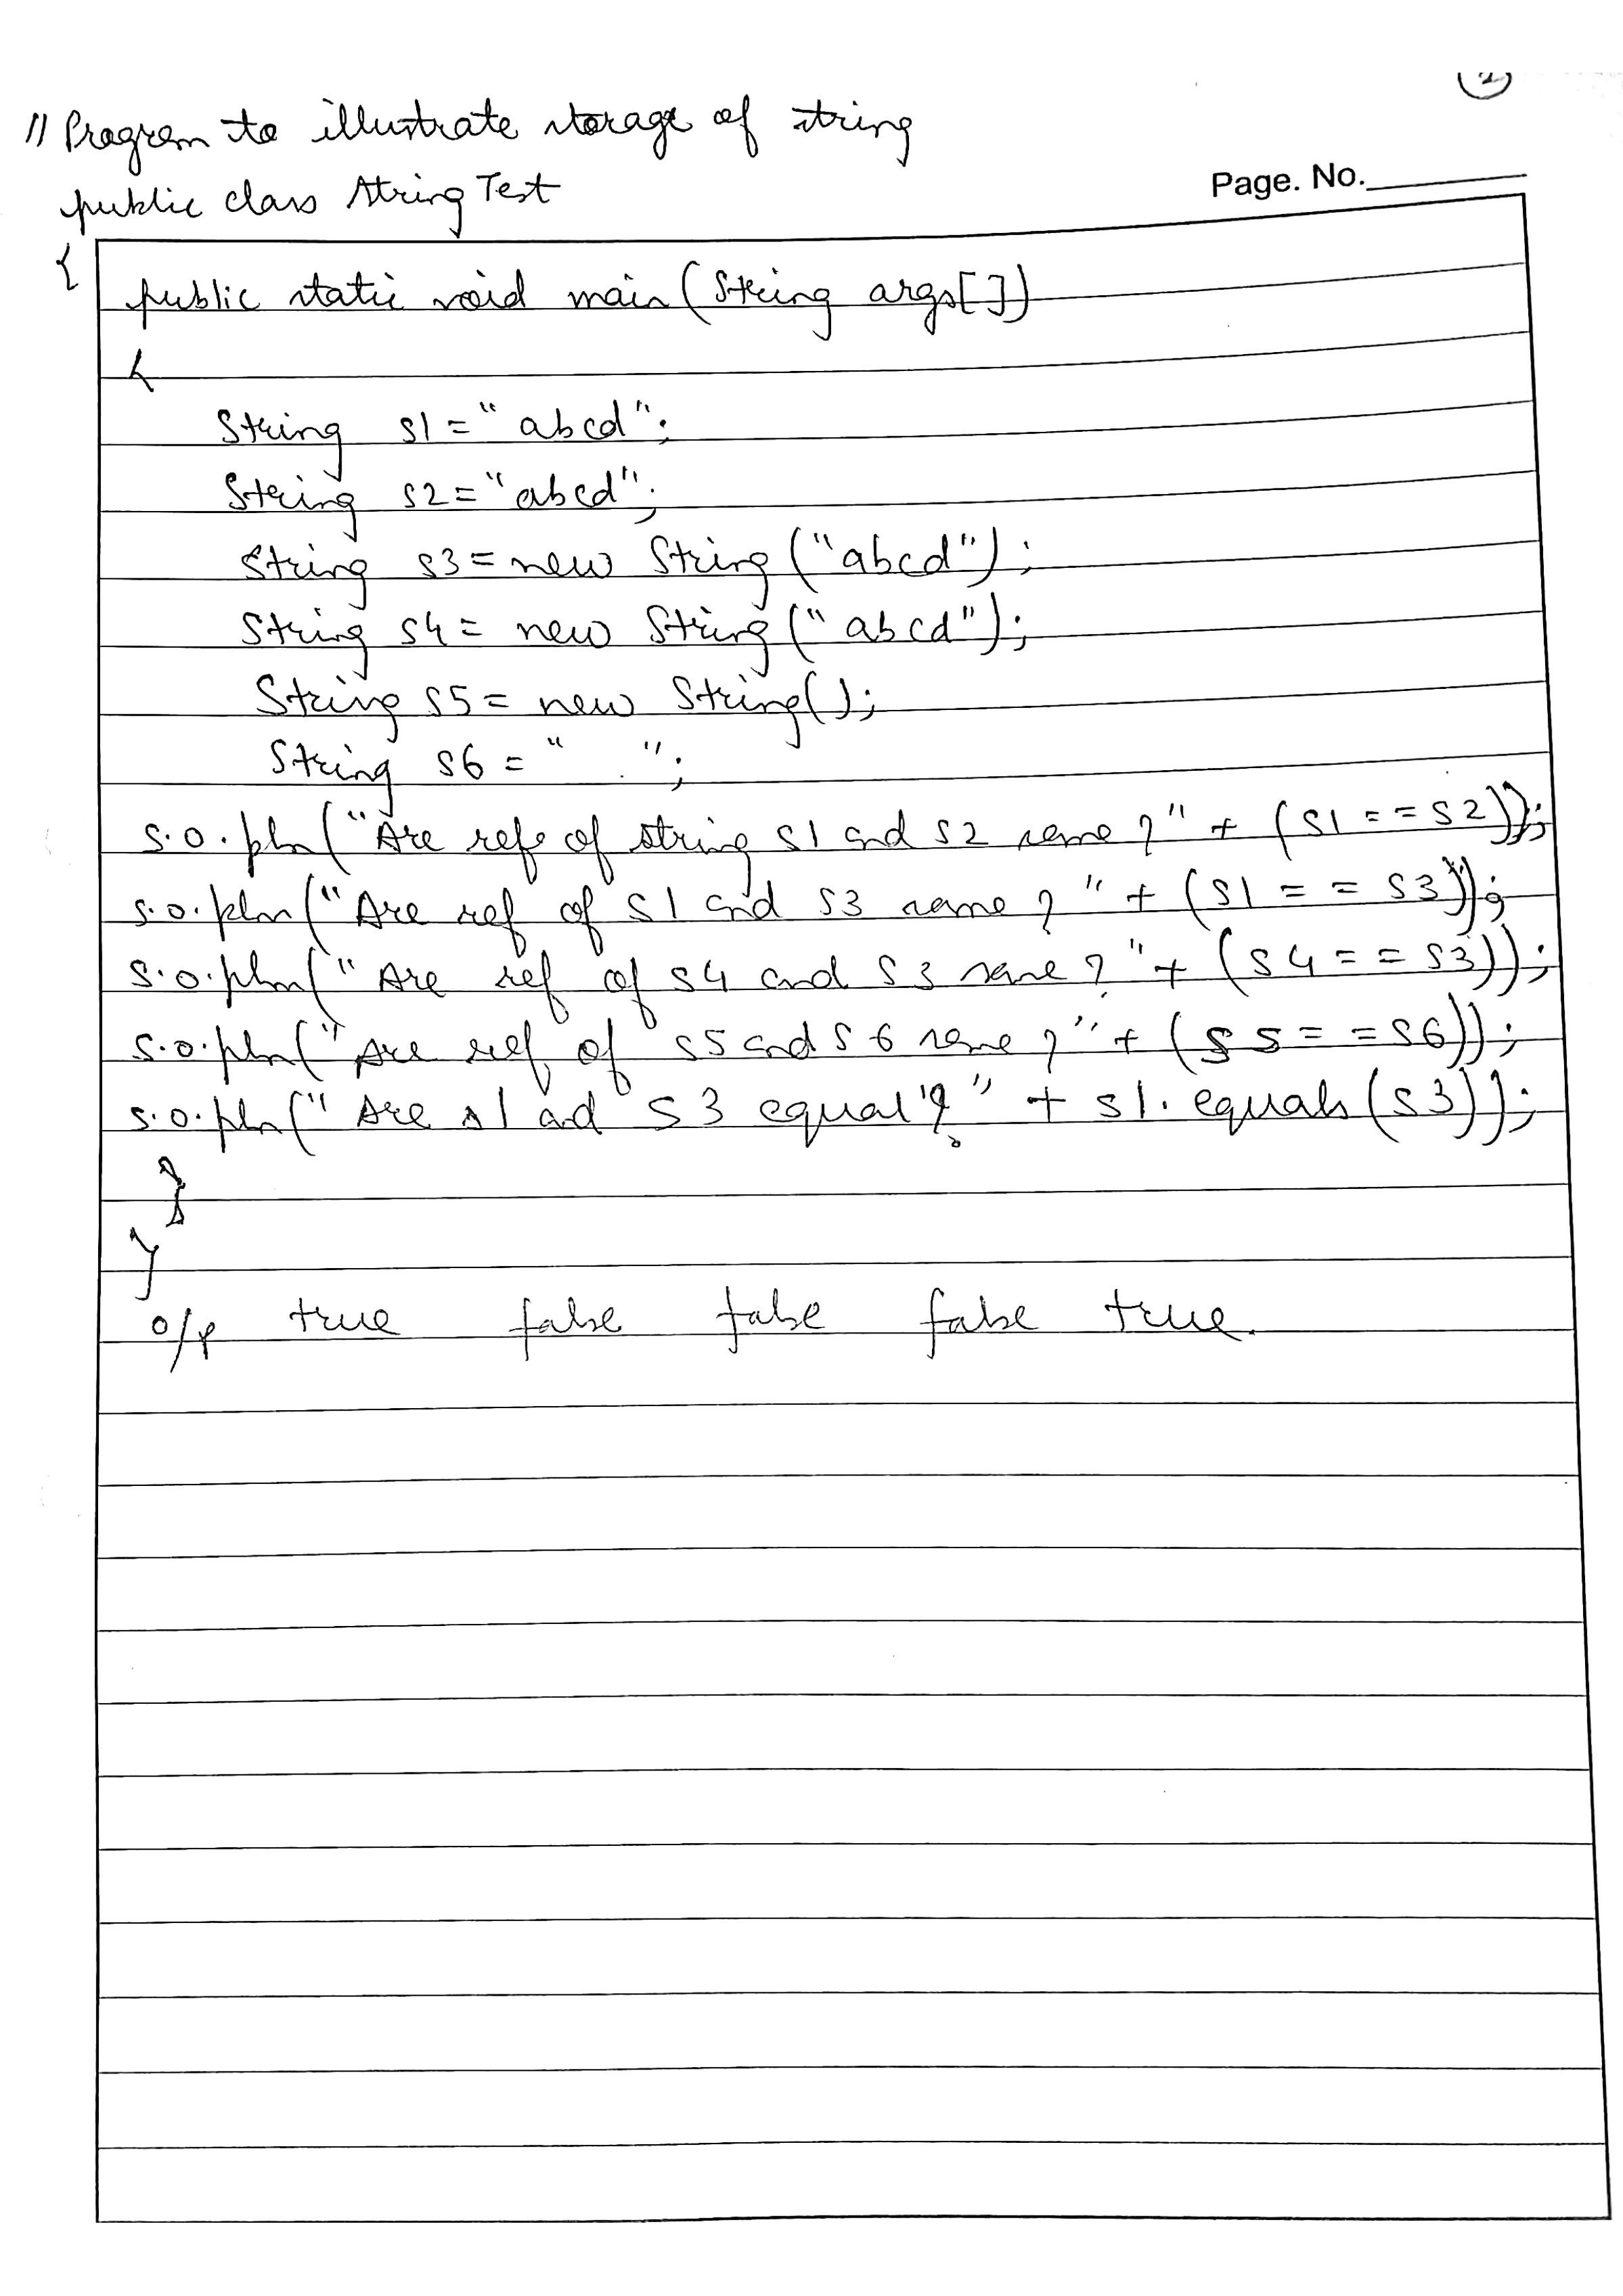 2
// Program to illustrate storage of string
Page. No.
public class String Test
{
public static void main (String args[])
{
String s1 = "abcd";
String s2 = "abcd";
String s3 = new String ("abcd");
String s4 = new String ("abcd");
String s5 = new String();
String s6 = " ";
S.o.pln("Are refs of string s1 and s2 same ?" + (s1 == s2));
S.o.pln("Are ref of s1 and s3 same ?" + (s1 == s3));
S.o.pln("Are ref of s4 and s3 same ?" + (s4 == s3));
S.o.pln("Are ref of s5 and s6 same ?" + (s5 == s6));
S.o.pln("Are s1 ad s3 equal ?" + s1.equals(s3));
}
}
o/p true false false false true.